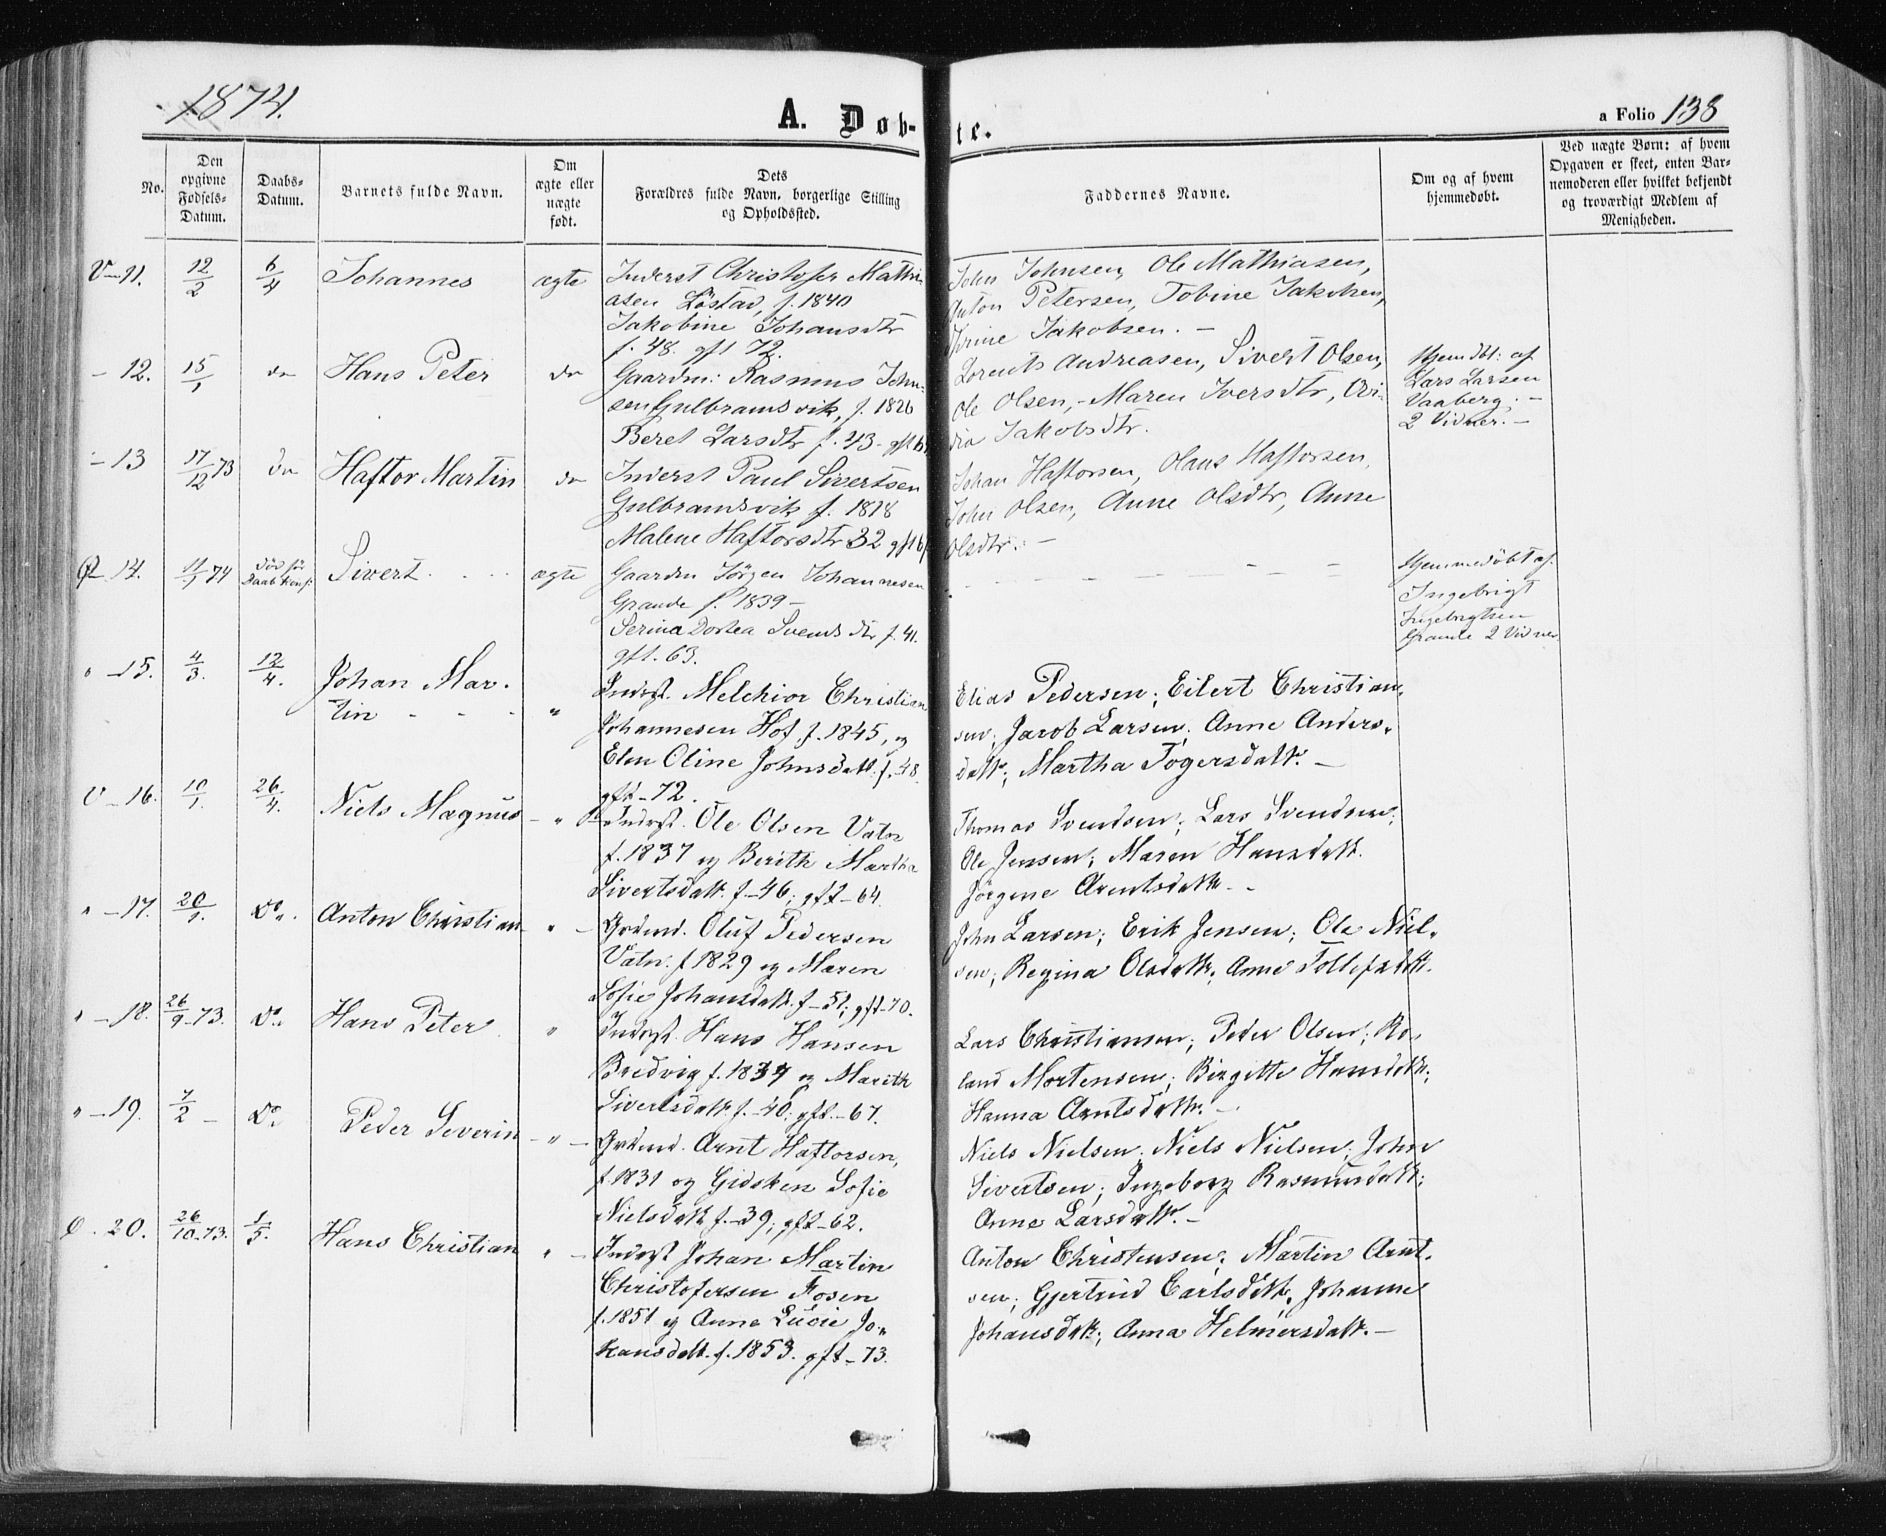 1874.
A. Døb-
te.
a Folio 138
No.
Den
opgivne
Fødsels-
Datum.
Daabs-
Datum.
Barnets fulde Navn.
Om
ægte eller
uægte
født.
Dets
Forældres fulde Navn, borgerlige Stilling
og Opholdssted.
Faddernes Navne.
Om og af hvem
hjemmedøbt.
Ved uægte Børn: af hvem
Opgaven er skeet, enten Bar-
nemoderen eller hvilket bekjendt
og troværdigt Medlem af
Menigheden.
V-11.
12/2
6/4
Johannes
ægte
Inderst Christofer Mathi-
asen Løstad, f. 1840
Jakobine Johansdtr
f. 48. gft 72.
John Johnsen, Ole Mathiasen,
Anton Petersen, Tobine Jakobsen,
Trine Jakobsen. -
- 12.
15/1
do
Hans Peter
do
Gaardm: Rasmus John-
sen Gulbramsvik, f. 1826
Beret Larsdtr f. 43 - gft
Lorents Andreasen, Sivert Olsen,
Ole Olsen, - Maren Iversdtr,
Jakobsdtr.
Hjemdbt: af
Lars Larsen
Vaaberg. -
2 Vidner. -
- 13
17/12 73
do
Haftor Martin
do
Inderst Paul Sivertsen
Gulbramsvik f. 1818
Malene Haftorsdtr 32 gft
Johan Haftorsen, Olaus Haftorsen,
John Olsen, Anne Olsdtr, Anne
Olsdtr. -
Ø- 14.
11/1 74
Død før
Daab Konf.
Sivert.
ægte
Gaardm Jørgen Johannesen
Grande f. 1839 -
Serina Dortea Svends dtr f. 41.
gft. 63.
Hjemmedøbt af
Ingebrigt
Ingebrigtsen
Grande 2 Vidner
" - 15.
4/3.
12/4.
Johan Mar-
tin - - -
"
Inderst. Melchior Christian
Johannesen Hof. f. 1845, og
Elen Oline Johnsdatt. f. -48
gft - 72.
Elias Pedersen; Eilert Christian-
sen; Jacob Larsen; Anne Anders-
datt; Martha Togersdatt. -
V - 16.
10/1.
26/4.
Niels Magnus
- "
Inderst. Ole Olsen Vatn
f. 1837 og Berith Martha
Sivertsdatt. f. -46; gft - 64.
Thomas Svendsen; Lars Svendsen;
Ole Jensen; Maren Hansdatt.
Jørgine Arentsdatt. -
" - 17.
20/1.
Do.
Anton Christian
" -
Grdmd. Oluf Pedersen
Vatn. f. 1829 og Maren
Sofie Johansdatt. f - 51; gft - 70.
John Larsen; Erik Jensen; Ole Niel-
sen; Regina Olsdatt; Anne Tollefsdatt.
" - 18.
26/9 - 73.
Do.
Hans Peter
"
Inderst. Hans Hansen
Bredvig f. 1837 og Marith
Sivertsdatt. f. - 40; gft. - 67.
Lars Christiansen; Peder Olsen; Ro-
land Mortensen; Birgitte Hansdatt;
Hanna Arntsdatt. -
" - 19.
7/2 -
Do.
Peder Severin
- " -
Grdmd. Arnt Haftorsen,
f. 1831 og Gidsken Sofie
Nielsdatt f. - 39; gft - 62.
Niels Nielsen; Niels Nielsen; John
Sivertsen; Ingeborg Rasmusdatt;
Anne Larsdatt. -
Ø. 20.
26/10 - 73.
1/5.
Hans Christian
" -
Inderst Johan Martin
Christofersen Fosen
f. 1851 og Anne Lucie Jo-
hansdatt. f. 1853. gft - 73.
Anton Christensen; Martin Arnt-
sen; Gjertrud Carlsdatt; Johanne
Johansdatt; Anna Helmersdatt. -